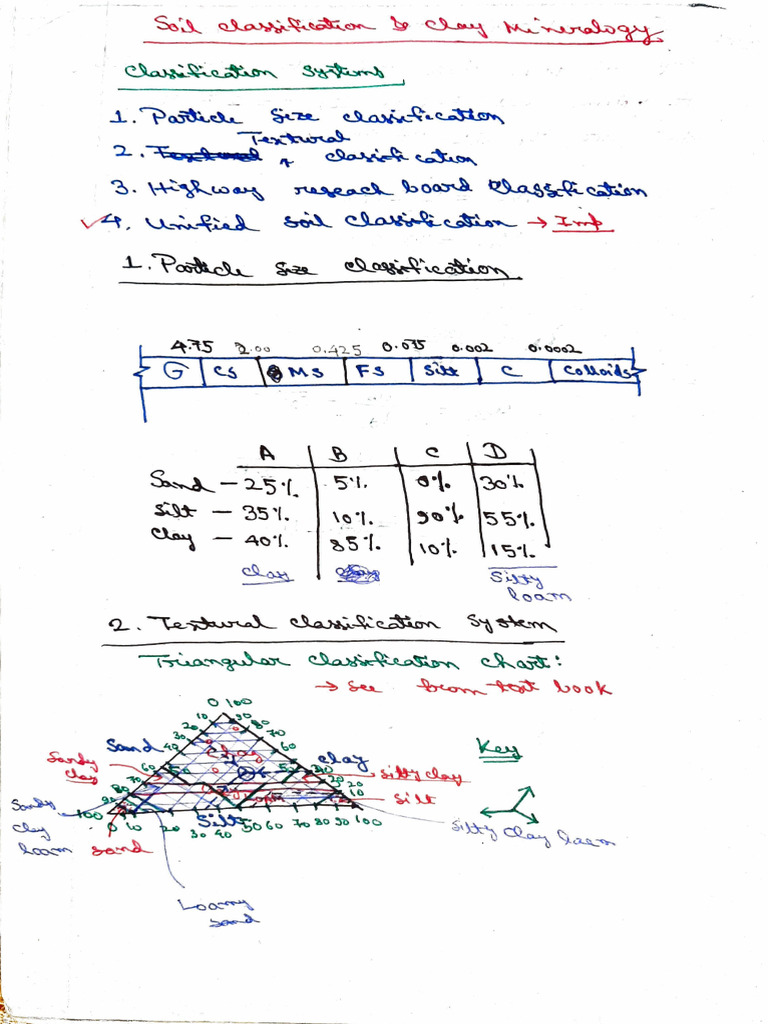 Soil classification & Clay Mineralogy
Classification Systems
1. Particle Size classification
2. Textural classification
3. Highway reseach board Classification
4. Unified soil classification → Imp
1. Particle size classification
4.75 2.00 0.425 0.075 0.002 0.0002
G CS MS FS Silt C Colloids
A B C D
Sand - 25% 5% 0% 30%
Silt - 35% 10% 90% 55%
Clay - 40% 85% 10% 15%
Clay Silty loam
2. Textural classification System
Triangular classification chart:
→ See from text book
0 100
10 90
20 80
30 70
Sand 40 60 Clay
Key
Sandy clay
Silty clay
Silt
Sandy clay loam
Silty clay loam
100 0 10 20 30 40 50 60 70 80 90 100
Silt
Sand
Loamy sand